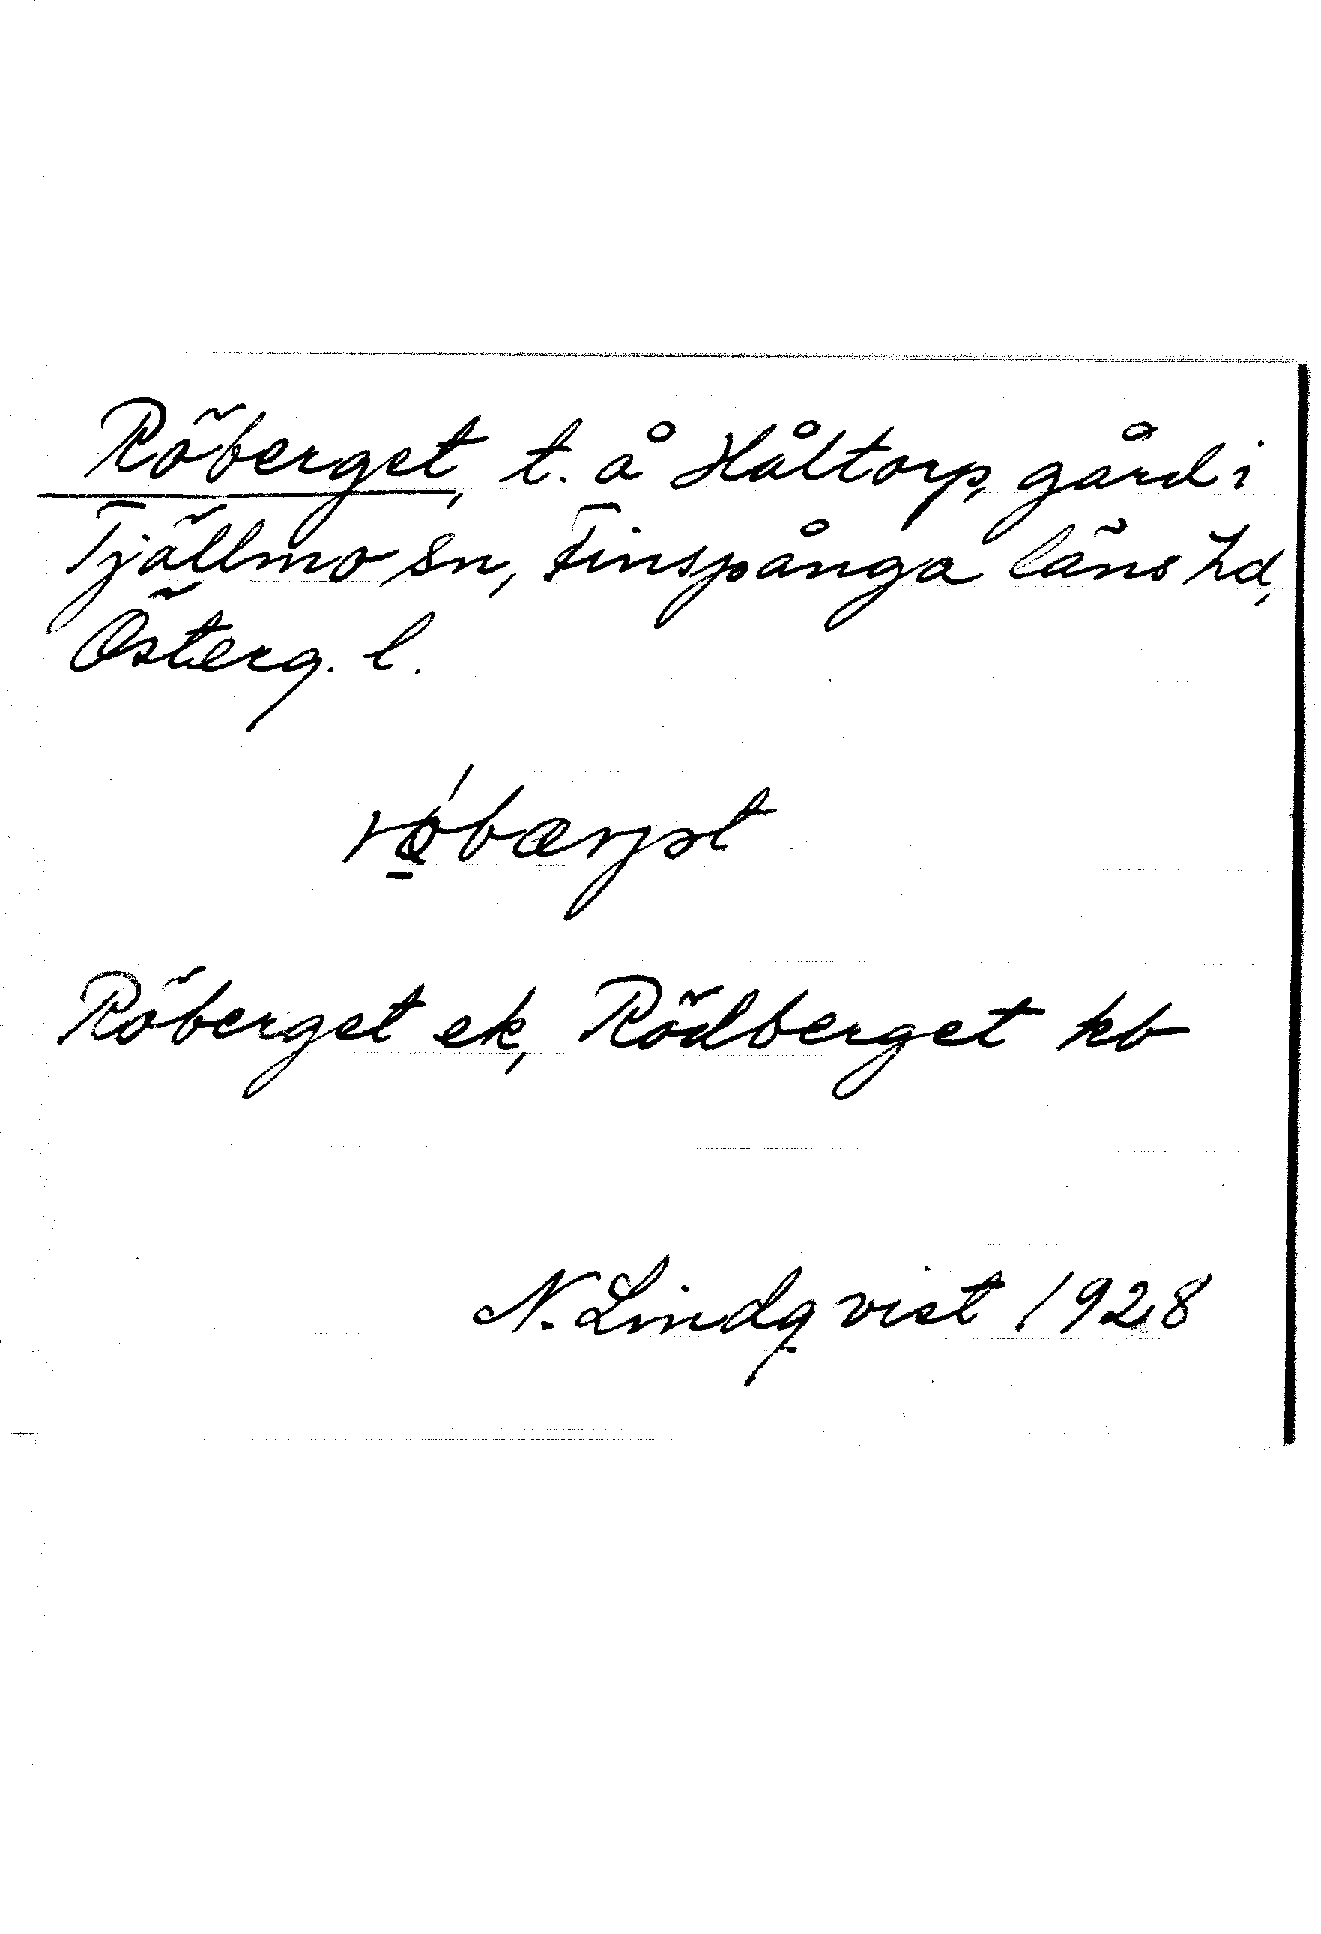 Röberget, t. å Håltorp, gård i
Tjällmo sn, Finspånga läns hd,
Österg. l.
Röberget ek, Rödberget kb
N. Lindqvist 1928